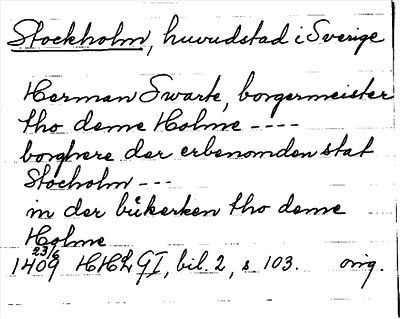 Stockholm, huvudstad i Sverige
Herman Swarte, borgermeister
tho deme Holme ----
borghere der erbenomden stat
Stocholm ---
in der bůkerken tho deme
Holme
23/6
1409 HHL GI, bil. 2, s. 103. orig.